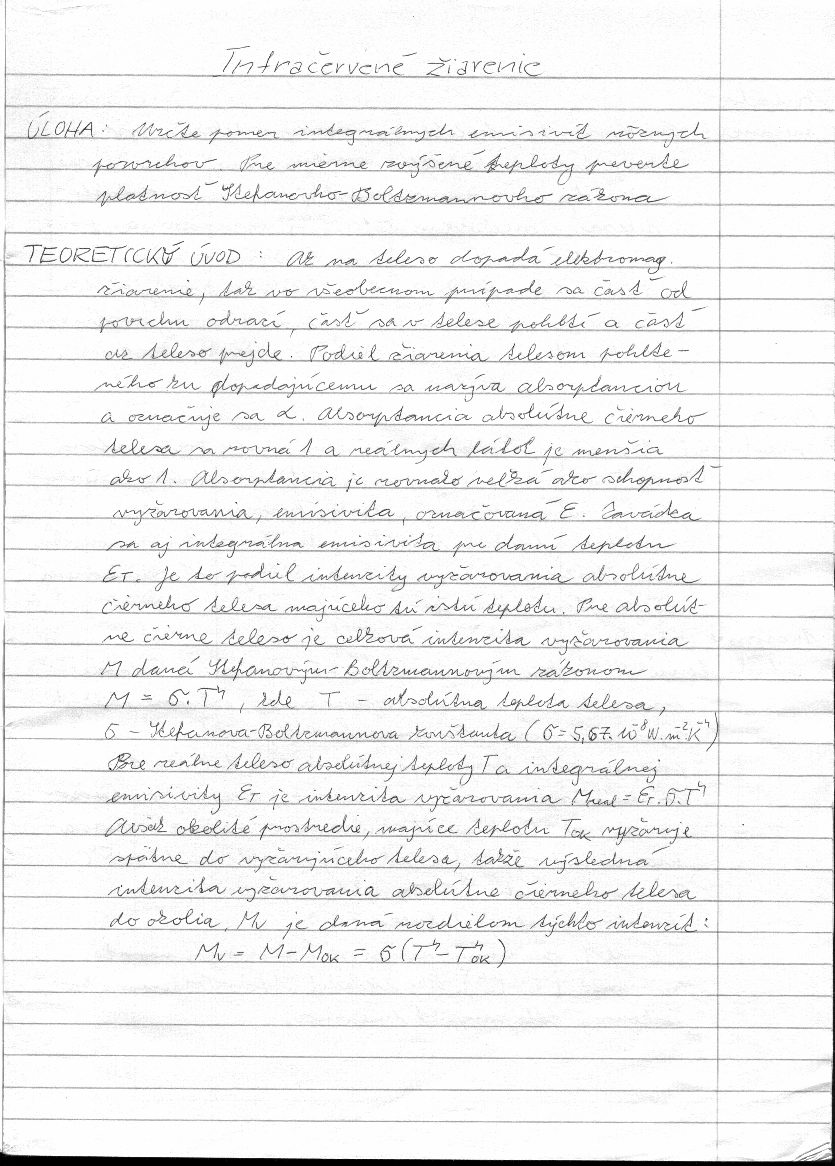 Infračervené žiarenie
ÚLOHA: Určte pomer integrálnych emisivít rôznych
povrchov. Pre mierne zvýšené teploty preverte
platnosť Stefanovho-Boltzmannovho zákona
TEORETICKÝ ÚVOD: Ak na teleso dopadá elektromag.
žiarenie, tak vo všeobecnom prípade sa časť od
povrchu odrazí, časť sa v telese pohltí a časť
cez teleso prejde. Podiel žiarenia telesom pohlte-
ného ku dopadajúcemu sa nazýva absorptanciou
a označuje sa α. Absorptancia absolútne čierneho
telesa sa rovná 1 a reálnych látok je menšia
ako 1. Absorptancia je rovnako veľká ako schopnosť
vyžarovania, emisivita, označovaná ε. Zavádza
sa aj integrálna emisivita pre danú teplotu
ε_T. Je to podiel intenzity vyžarovania absolútne
čierneho telesa majúceho tú istú teplotu. Pre absolút-
ne čierne teleso je celková intenzita vyžarovania
M daná Stefanovým-Boltzmannovým zákonom
M = σ.T⁴, kde T - absolútna teplota telesa,
σ - Stefanova-Boltzmannova konštanta (σ=5,67.10⁻⁸W.m⁻²K⁻⁴)
Pre reálne teleso absolútnej teploty T a integrálnej
emisivity ε_T je intenzita vyžarovania M_real = ε_T.σ.T⁴
Avšak okolité prostredie, majúce teplotu T_OK vyžaruje
spätne do vyžarujúceho telesa, takže výsledná
intenzita vyžarovania absolútne čierneho telesa
do okolia, M_v je daná rozdielom týchto intenzít:
M_v = M-M_OK = σ(T⁴-T⁴_OK)